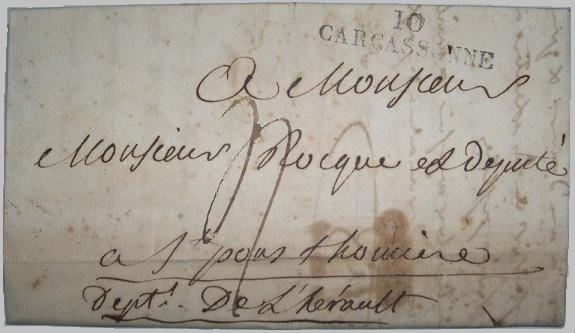 10
CARCASSONNE
A Monsieur
Monsieur Rocque ex député
a St pons thomiere
Dept. De L'hérault